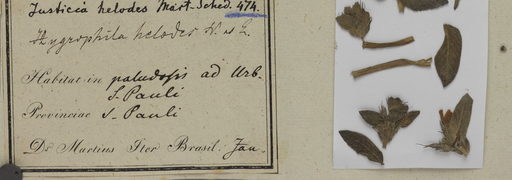 Justicia helodes Mart. Sched. 474.
Hygrophila helodes N. ab E.
Habitat in paludosis ad Urb.
S. Pauli
Provinciae S. Pauli
Dr Martius Iter Brasil. Jan